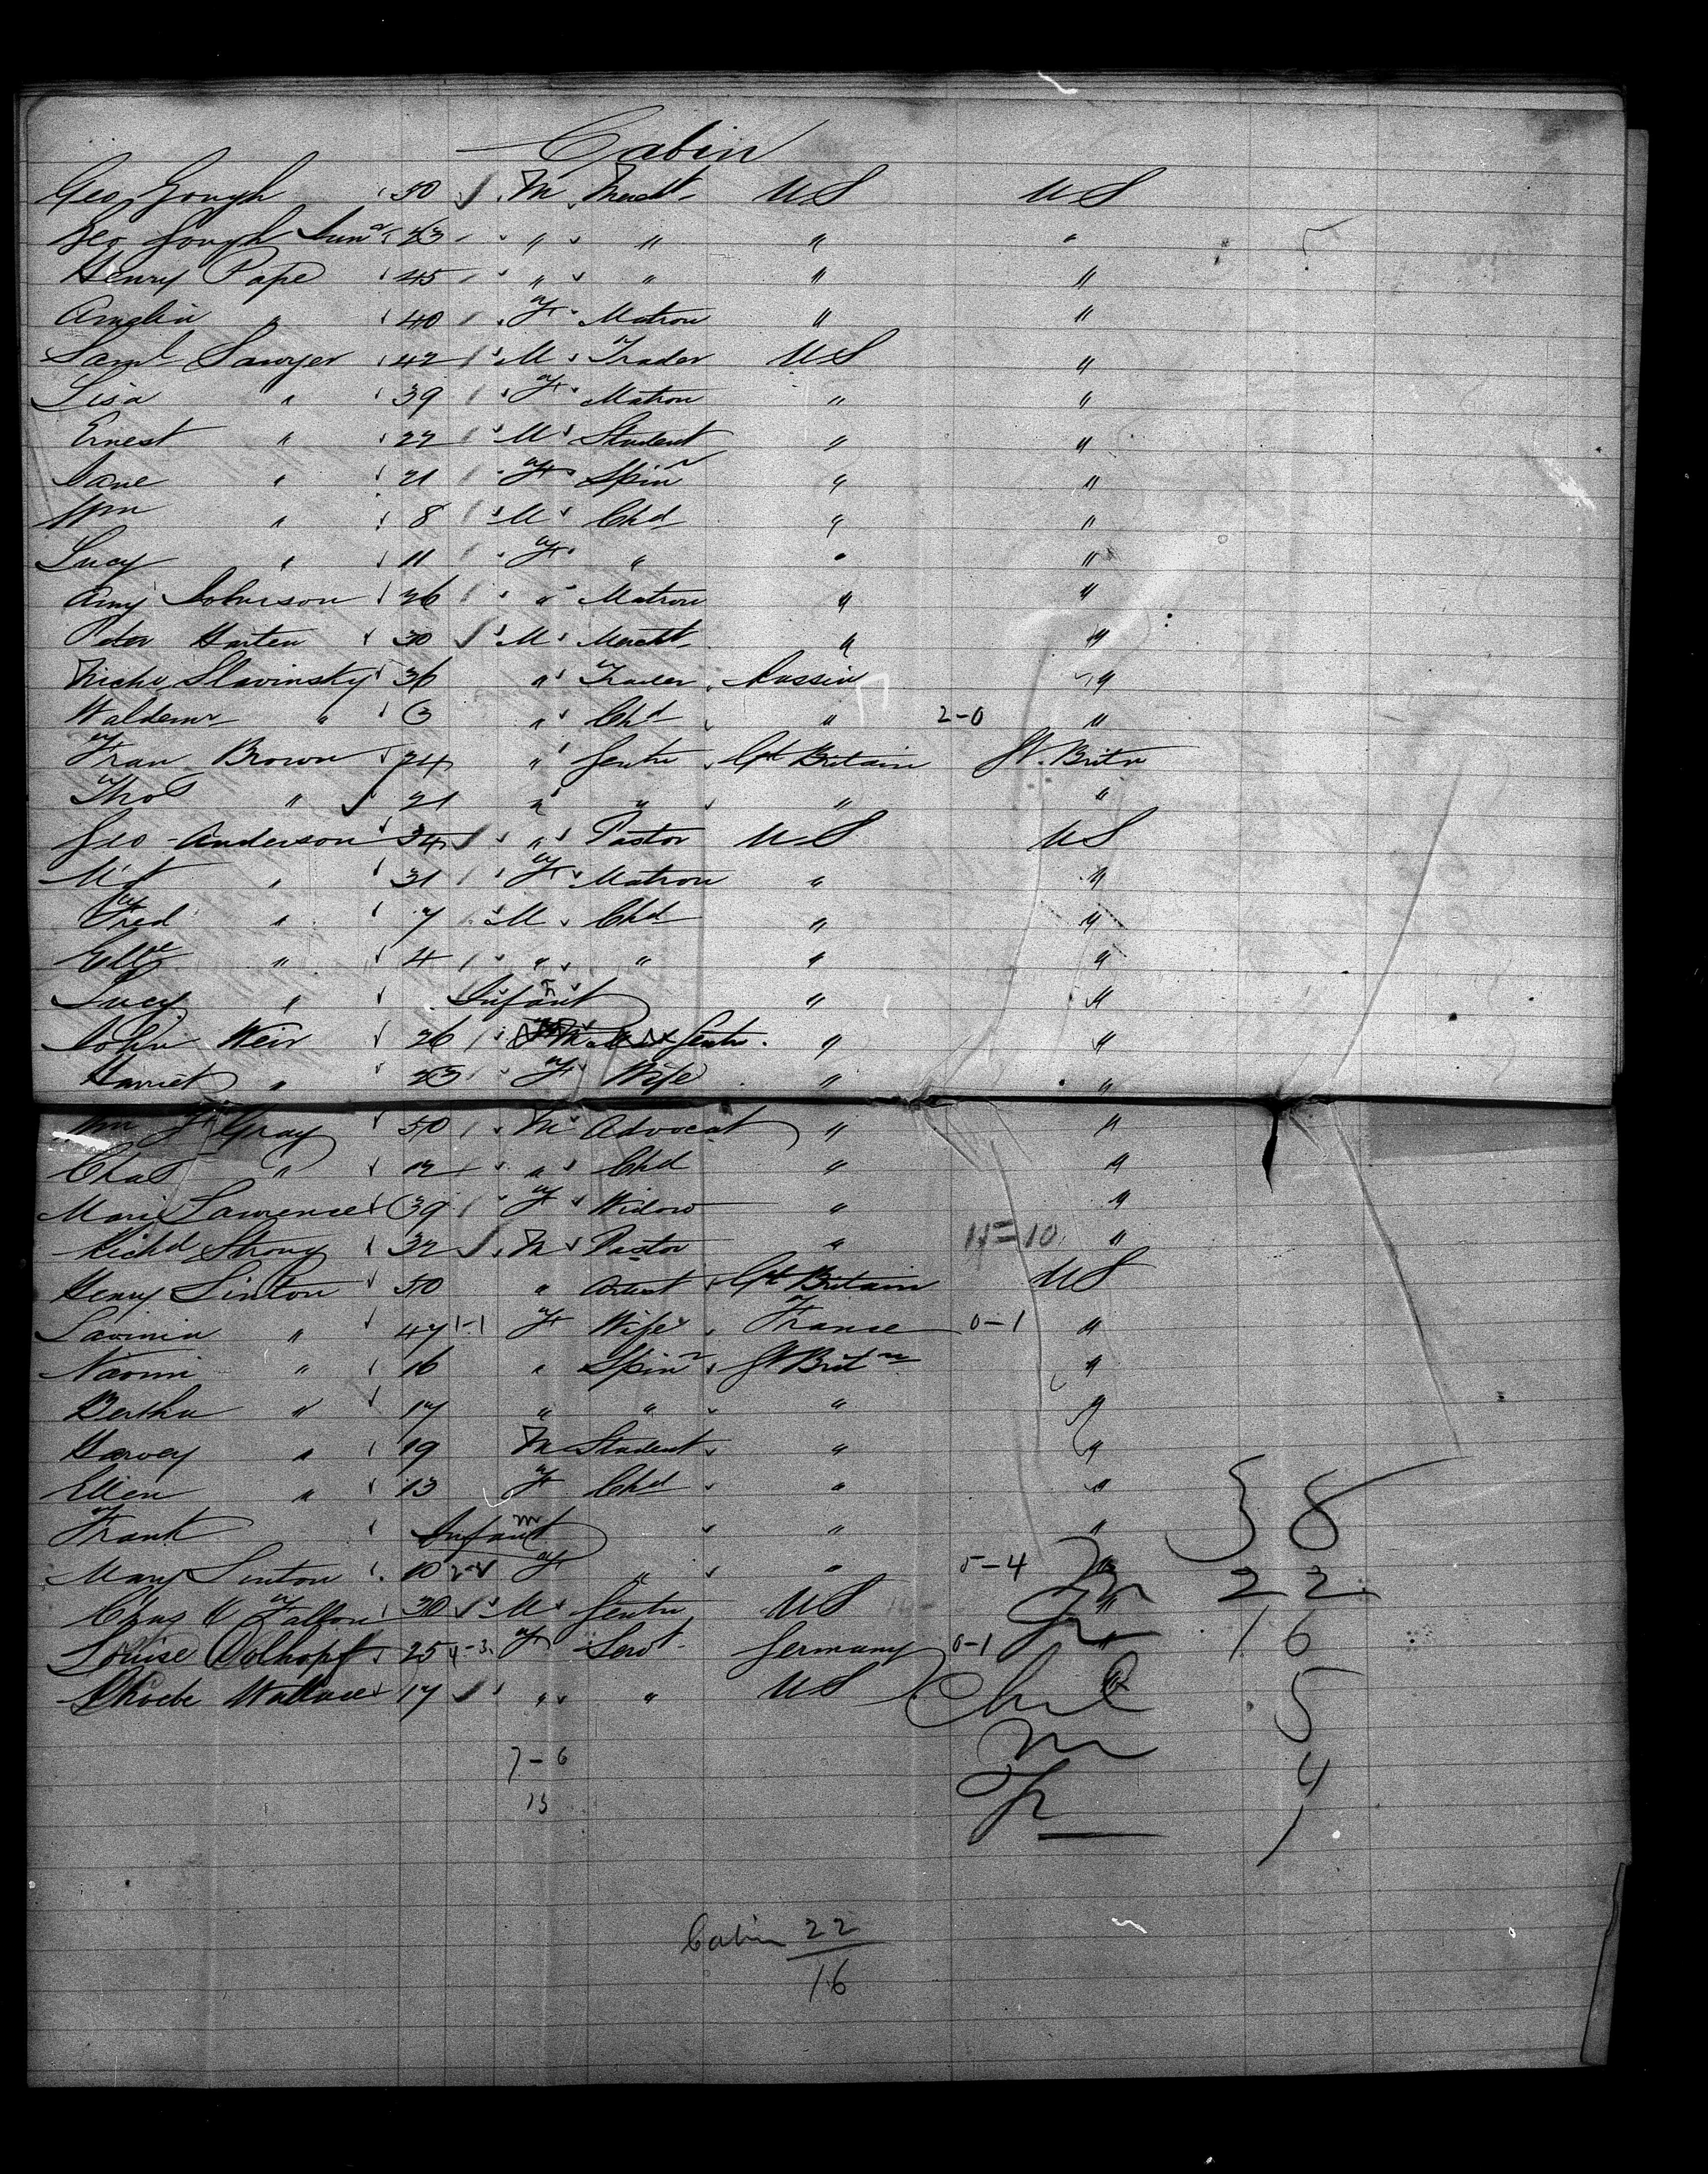 Cabin
Geo Gough 50 M Mercht US US
Geo Gough Junr 23 " " " "
Henry Pape 45 " " " "
Amelia " 40 F Matron " "
Saml Sawyer 42 M Trader US "
Lisa " 39 F Matron " "
Ernest " 22 M Student " "
Jane " 21 F Spinr " "
Wm " 8 M Chd " "
Lucy " 11 F " " "
Amy Johnson 26 " Matron " "
Peter Harten 30 M Mercht " "
Slavinsky 36 " Trader Russia "
Waldemr " 3 " Chd " 2-0 "
Fran Brown 24 " Gentn Gt Britain Gt. Britn
Thos " 21 " " " "
Geo Anderson 34 " Pastor US US
Mgt " 31 F Matron " "
Fred " 7 M Chd " "
" 4 " " " "
Lucy " Infant F " "
John Weir 26 M Gentn. " "
Harriet " 23 F Wife " "
Wm F Gray 50 M Advocat " "
Chas " 12 " Chd " "
Mary Lawrence 39 F Widow " "
Richd Strong 32 M Pastor " 11=10 "
Henry Linton 50 " Artist Gt Britain US
Lavinia " 47 1-1 F Wife France 0-1 "
Naomi " 16 " Spinr Gt Britn "
Bertha " 17 " " " "
Harvey " 19 M Student " "
Ellen " 13 F Chd " "
Frank Infant m " " 38
Mary Linton 10 F " " 5-4 "
Fallon 30 M Gentn US " m 22
Louise Dolhopf 25 4-3 F Servt Germany 0-1 " F 16
Phoebe Wallace 17 " " US " Chil 5
7-6 m 4
13 F 1
Cabin 22
16